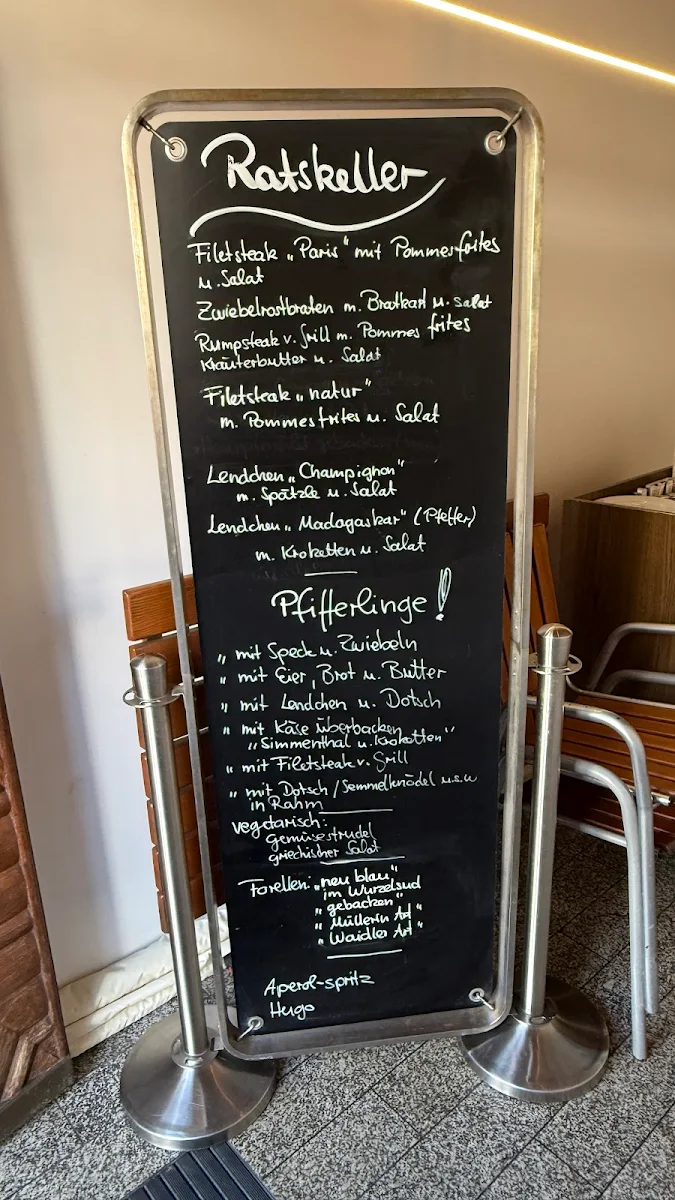 Ratskeller
Filetsteak „Paris" mit Pommesfrites
u. Salat
Zwiebelrostbraten m. Bratkart u. Salat
Rumpsteak v. Grill m. Pommes frites
Kräuterbutter u. Salat
Filetsteak „natur"
m. Pommesfrites u. Salat
Lendchen „Champignon"
m. Spätzle u. Salat
Lendchen „Madagaskar" (Pfeffer)
m. Kroketten u. Salat
Pfifferlinge!
" mit Speck u. Zwiebeln
" mit Eier, Brot u. Butter
" mit Lendchen u. Dotsch
" mit Käse überbacken
"Simmenthal u. Kroketten"
" mit Filetsteak v. Grill
" mit Dotsch / Semmelknödel u.s.w
in Rahm
vegetarisch:
gemüsestrudel
griechischer Salat
Forellen: „neu blau"
im Wurzelsud
"gebacken"
"Müllerin Art"
"Waidler Art"
Aperol-spritz
Hugo